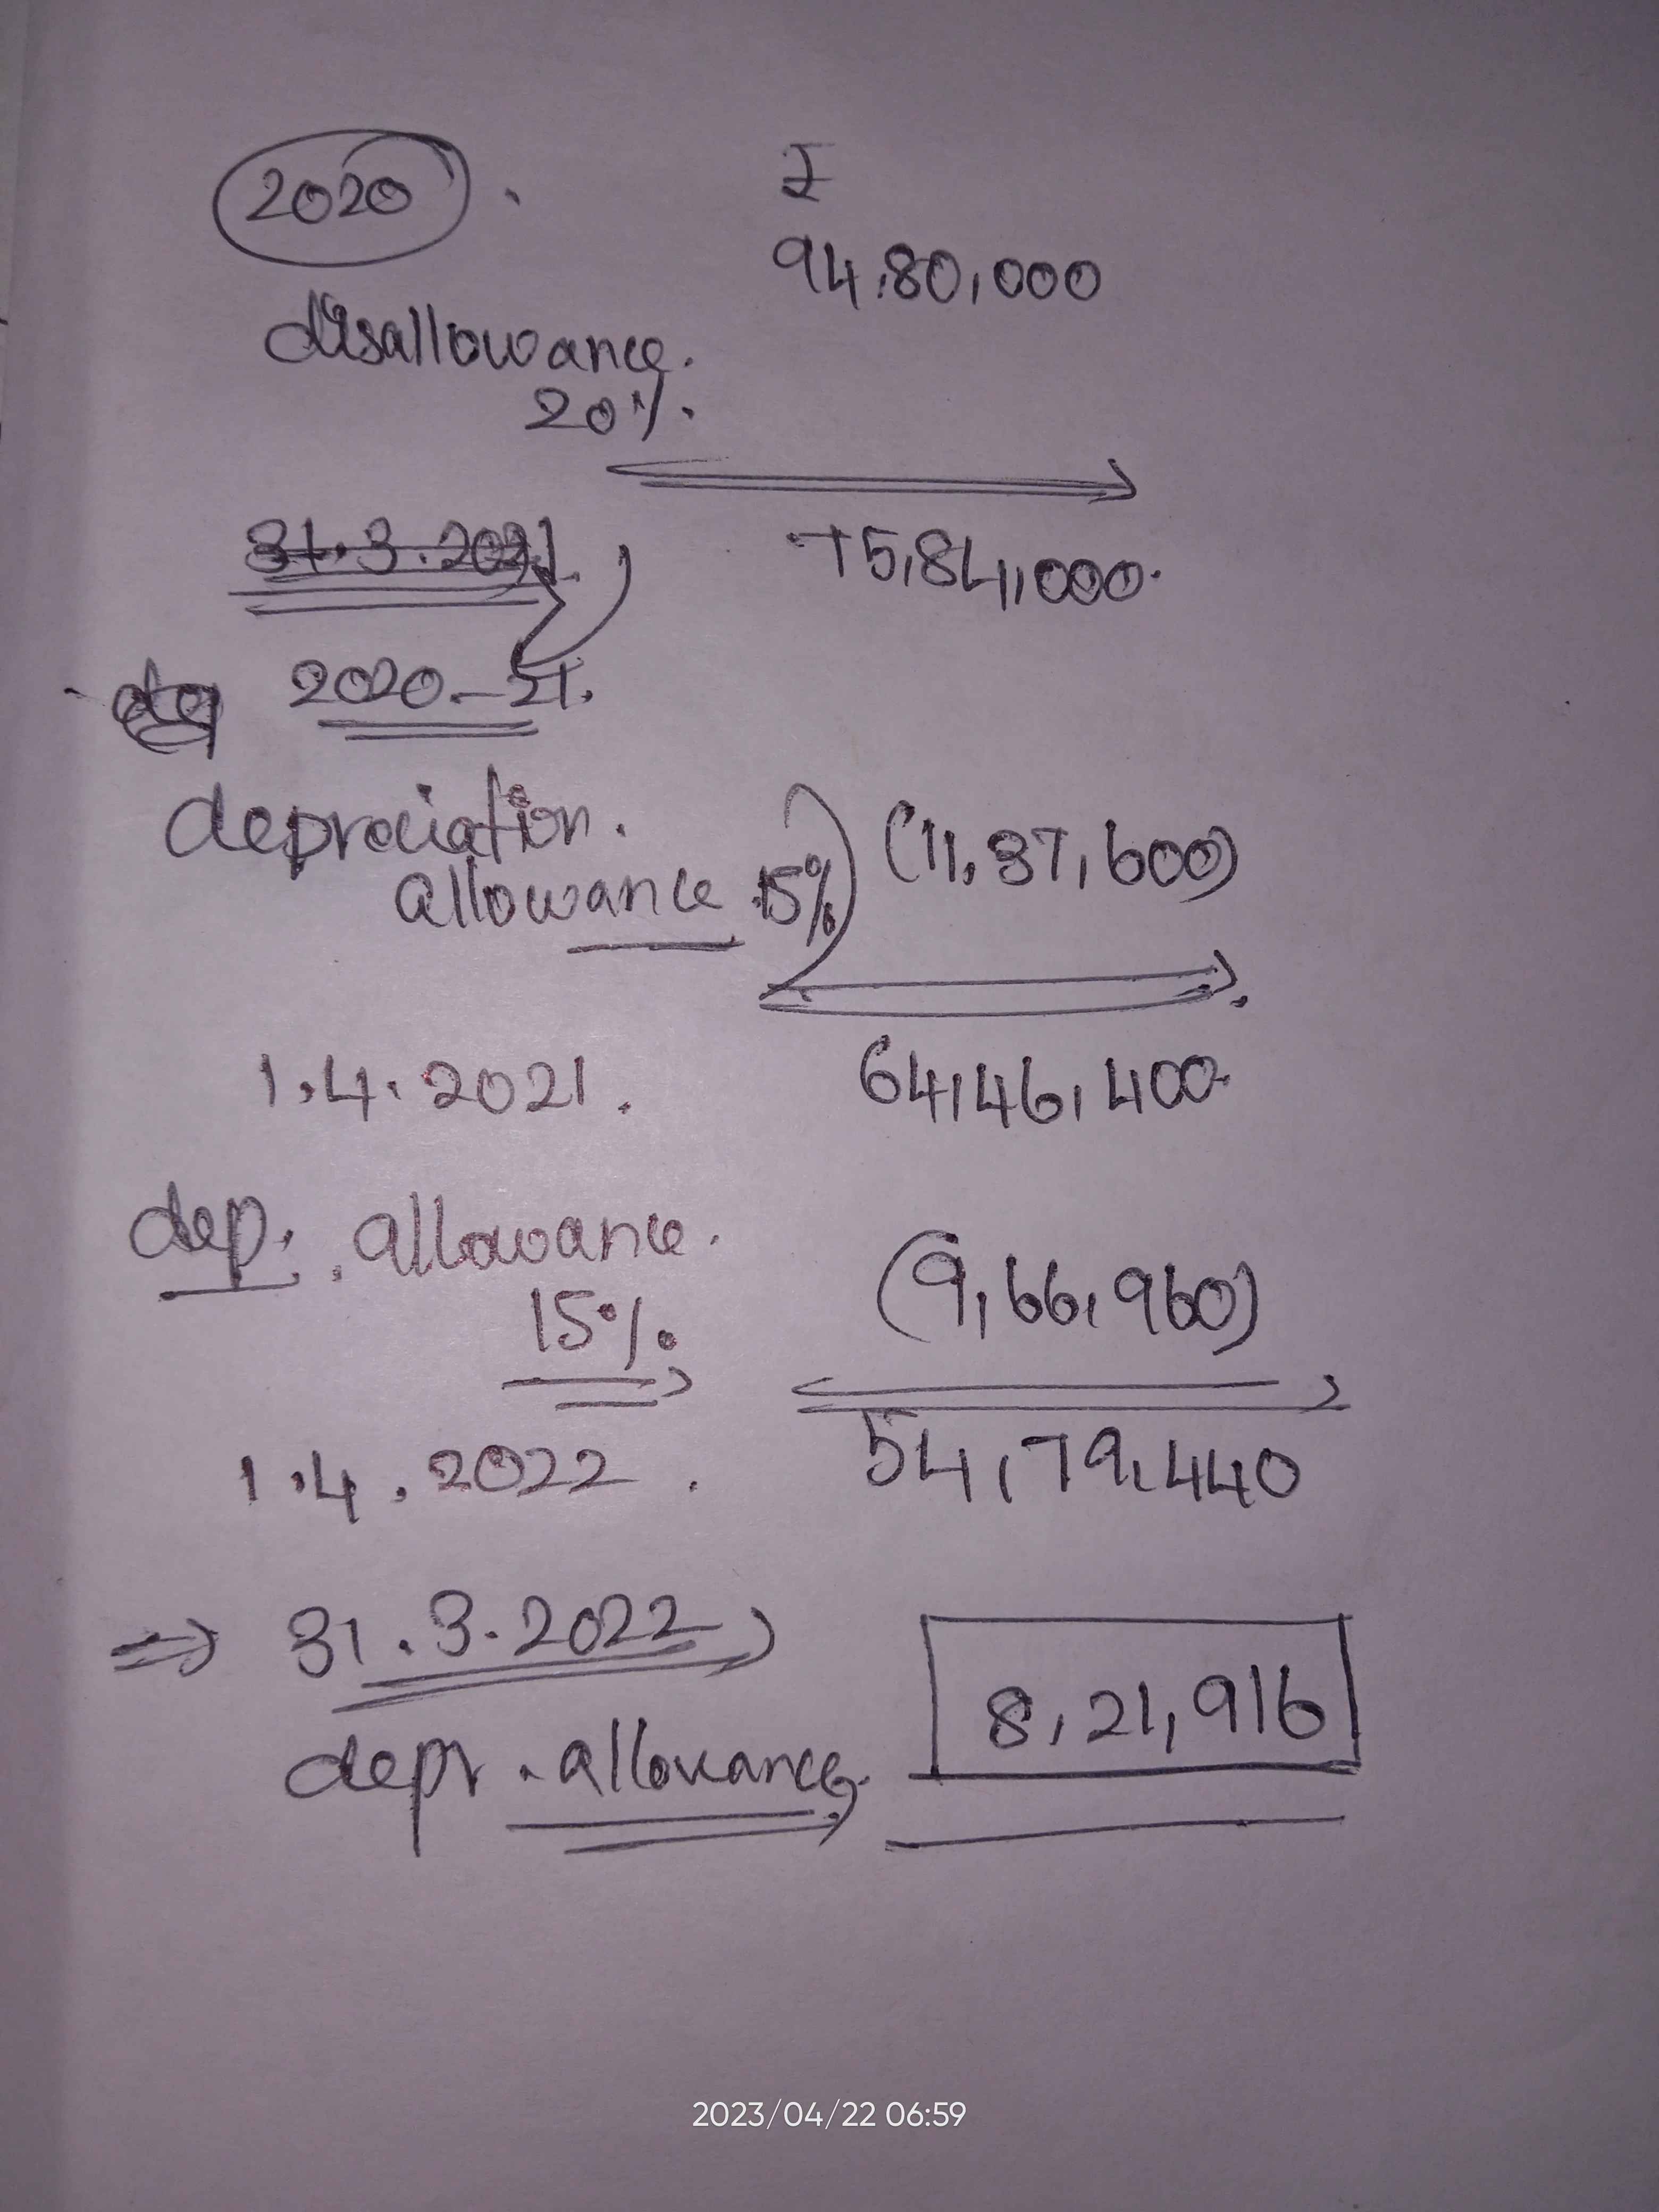 2020 . ₹
94,80,000
disallowance.
20%.
75,84,000.
31.3.2021
2020-21.
depreciation.
allowance 15% (11,37,600)
1.4.2021. 64,46,400
dep. allowance.
15% (9,66,960)
1.4.2022. 54,79,440
⇒ 31.3.2022
depr. allowance. 8,21,916
2023/04/22 06:59